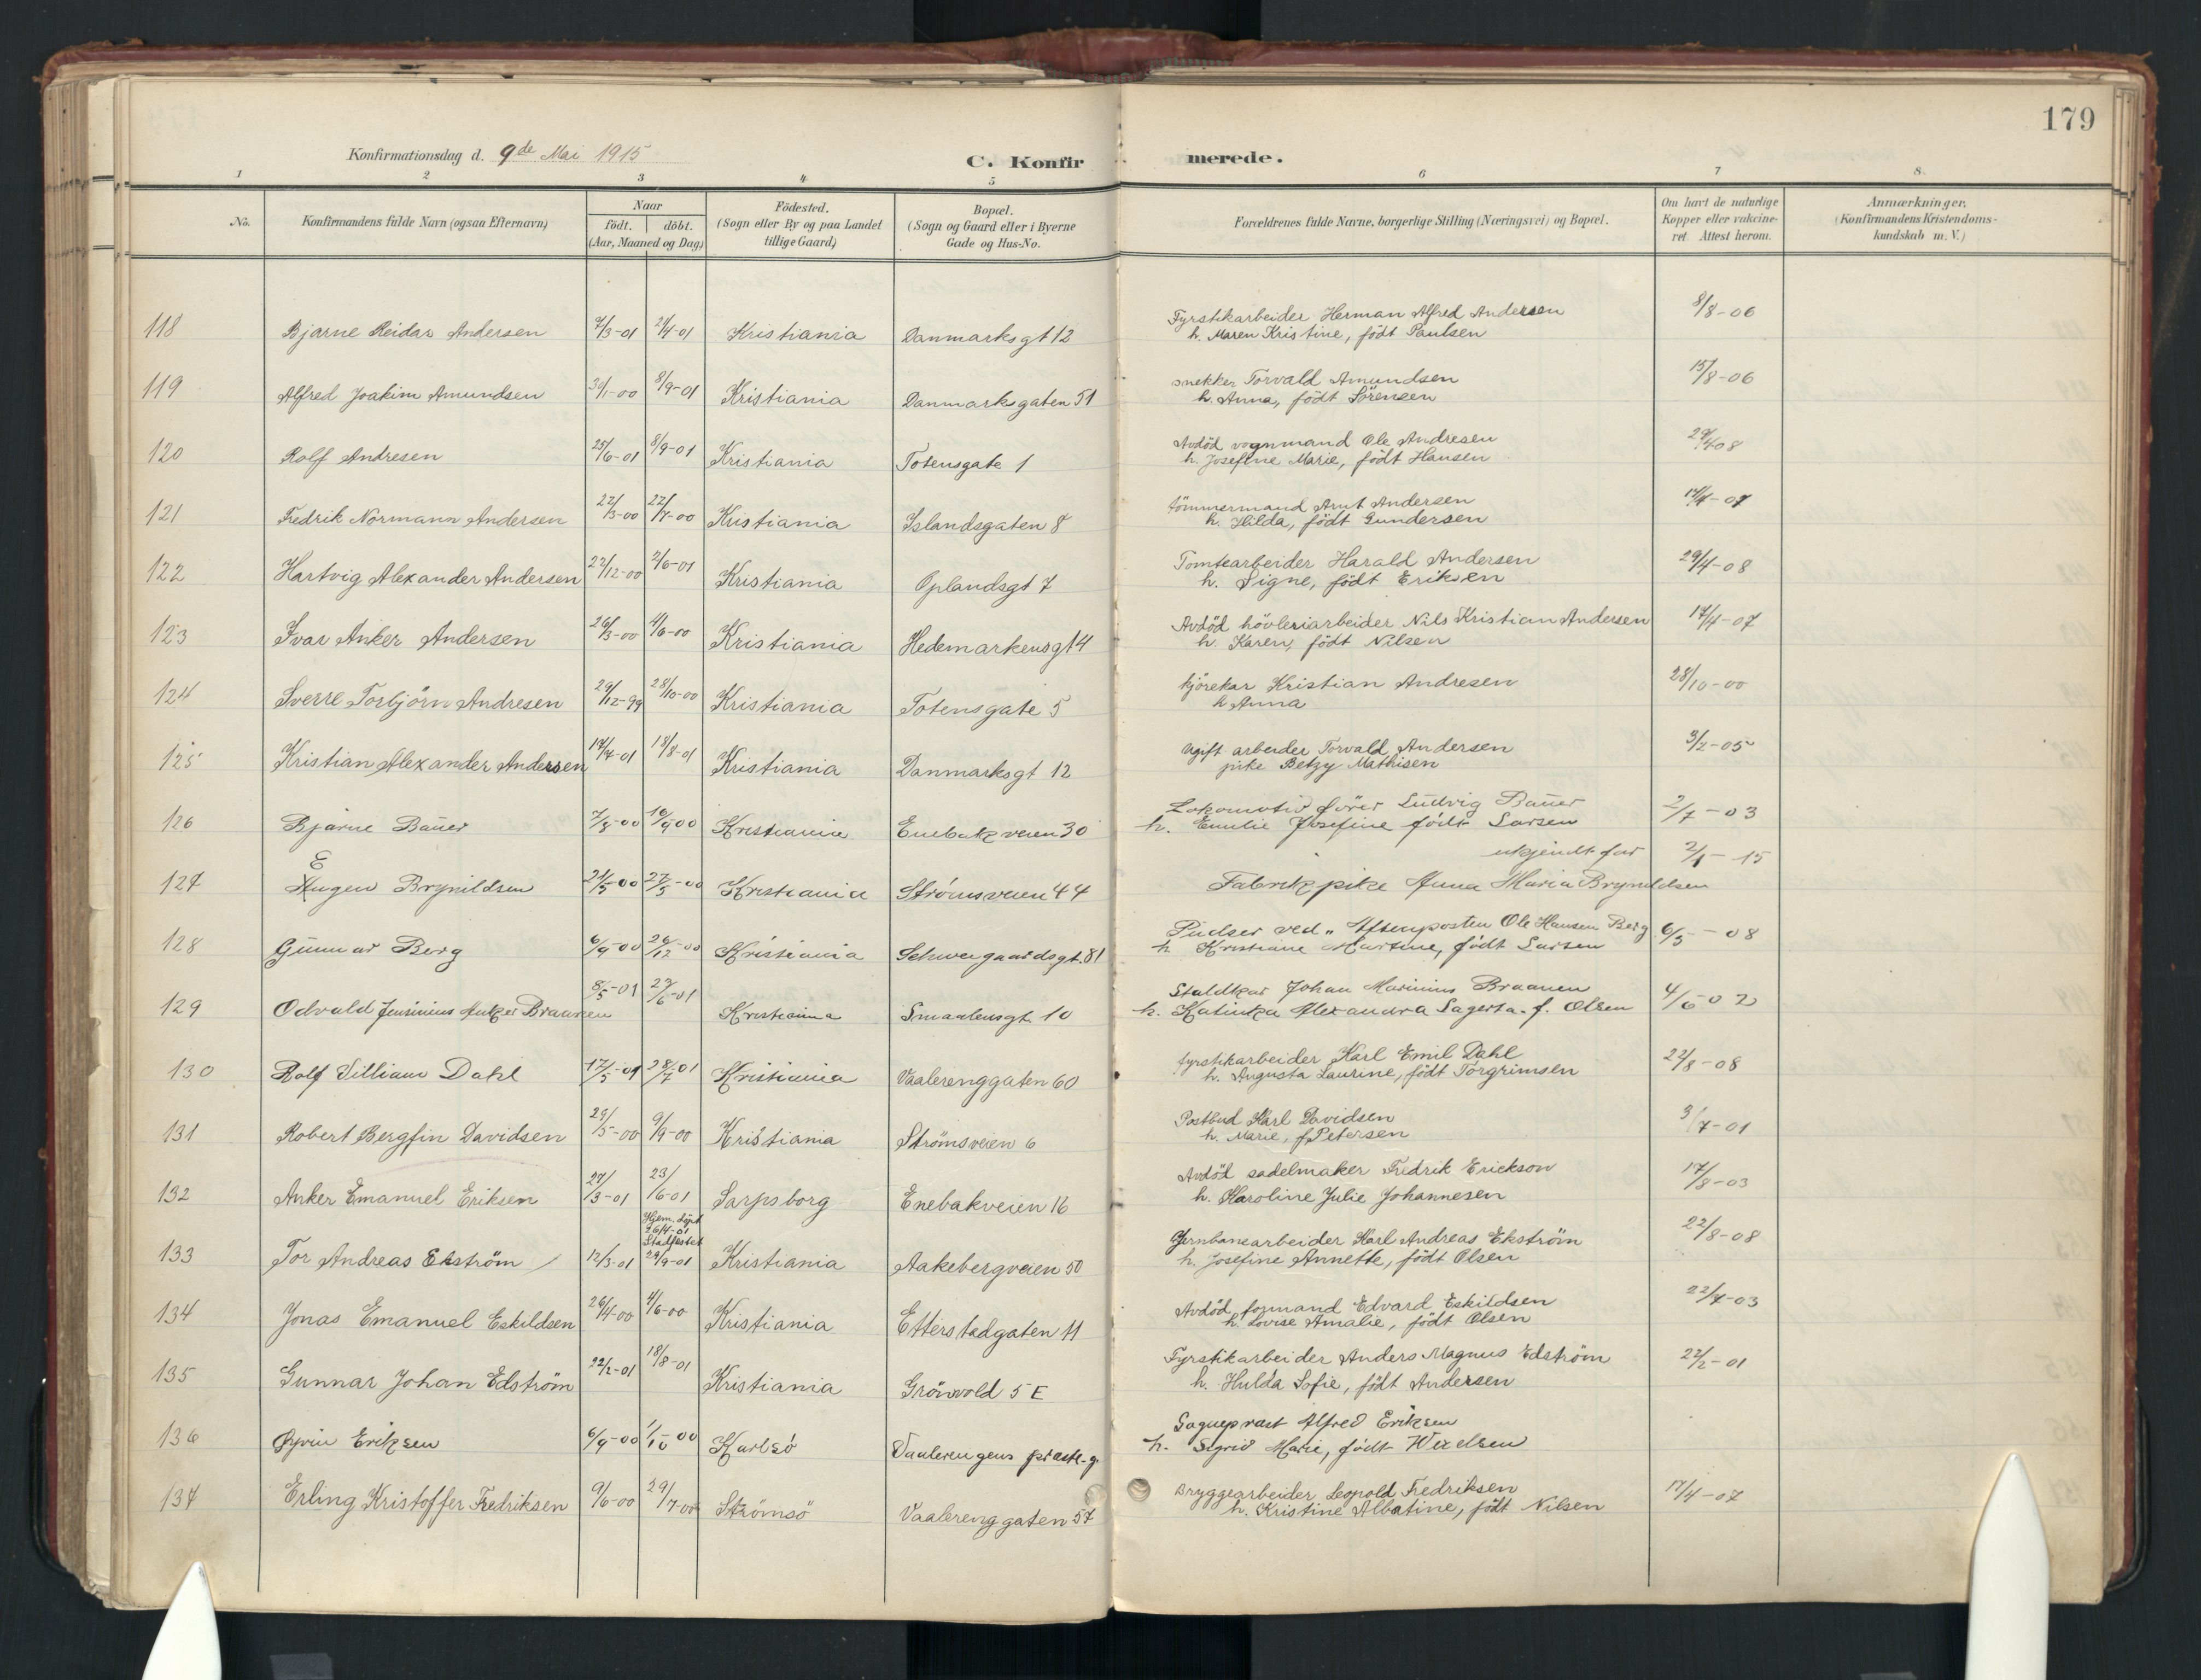 179
Konfirmationsdag d. 9de Mai 1915
C. Konfirmerede.
1 2 3 4 5 6 7 8.
No. | Konfirmandens fulde Navn (ogsaa Efternavn) | Naar født. døbt. (Aar, Maaned og Dag) | Fødested. (Sogn eller By og paa Landet tillige Gaard) | Bopæl. (Sogn og Gaard eller i Byerne Gade og Hus-No. | Forældrenes fulde Navne, borgerlige Stilling (Næringsvei) og Bopæl. | Om havt de naturlige Kopper eller vakcineret. Attest herom. | Anmærkninger. (Konfirmandens Kristendomskundskab m. V.)
118 Bjarne Reidar Andersen 7/3-01 21/4-01 Kristiania Danmarksgt 12 Fyrstikarbeider Herman Alfred Andersen 8/8-06
h. Maren Kristine, født Paulsen
119 Alfred Joakim Amundsen 8/9-01 Kristiania Danmarksgaten 51 snekker Torvald Amundsen 15/8-06
h. Anna, født Sörensen
120 Rolf Andresen 25/6-01 8/9-01 Kristiania Totensgate 1 Avdöd vognmand Ole Andresen 29/4 08
h. Josefine Marie, født Hansen
121 Fredrik Normann Andersen 22/3-00 Kristiania Islandsgaten 8 tömmermand Arnt Andersen 17/4-07
h. Hilda, født Gundersen
122 Hartvig Alexander Andersen 22/12-00 2/6-01 Kristiania Oplandsgt 7 Tomtearbeider Harald Andersen 29/4-08
h. Signe, født Eriksen
123 Ivar Anker Andersen 26/3-00 4/6-00 Kristiania Hedemarkensgt 4 Avdöd hövleriarbeider Nils Kristian Andersen 17/4-07
h. Karen, født Nilsen
124 Sverre Torbjörn Andresen 29/12-99 28/10-00 Kristiania Totensgate 5 kjörekar Kristian Andresen 28/10-00
h Anna
125 Kristian Alexander Andersen 17/4-01 18/8-01 Kristiania Danmarksgt 12 Ugift arbeider Torvald Andersen 3/2-05
pike Betzy Mathisen
126 Bjarne Bauer 7/8-00 16/9 00 Kristiania Enebakveien 30 Lokomotivförer Ludvig Bauer 2/7-03
h. Emilie Josefine født Larsen
E ukjendt far
127 Hugen Brynildsen 21/5-00 27/5-00 Kristiania Strömsveien 44 Fabrikpike Anna Maria Brynildsen 2/1-15
128 Gunnar Berg 6/9-00 26/12-00 Kristiania Schweigaardsgt. 81 Pudser ved "Aftenposten Ole Hansen Berg 6/5-08
h. Kristiane Martine, født Larsen
129 Odvald Jensinius Anker Braanen 8/5-01 23/6-01 Kristiania Smaalensgt. 10 Staldkar Johan Marinius Braanen 4/6 02
h. Katinka Alexandra Lagerta. f. Olsen
130 Rolf Villiam Dahl 17/5-01 28/7 01 Kristiania Vaalerenggaten 60 fyrstikarbeider Karl Emil Dahl 22/8-08
h. Augusta Laurine, født Torgrimsen
131 Robert Bergfin Davidsen 29/5-00 9/9-00 Kristiania Strömsveien 6 Postbud Karl Davidsen 3/7-01
h. Marie, f. Petersen
132 Anker Emanuel Eriksen 27/3-01 23/6-01 Sarpsborg Enebakveien 16 Avdöd sadelmaker Fredrik Erickson 17/8-03
h. Karoline Julie Johannesen
Hjem. döpt 26/4-01 Stadfæstet
133 Tor Andreas Ekström 12/3-01 29/9-01 Kristiania Aakebergveien 50 Jernbanearbeider Karl Andreas Ekström 22/8-08
h. Josefine Annette, født Olsen
134 Jonas Emanuel Eskildsen 26/4-00 4/6-00 Kristiania Etterstadgaten 11 Avdöd formand Edvard Eskildsen 22/7-03
h. Lovise Amalie, født Olsen
135 Gunnar Johan Edström 22/2-01 18/8-01 Kristiania Grönvold 5 E Fyrstikarbeider Anders Magnus Edström 22/2-01
h. Hulda Sofie, født Andersen
136 Øyvin Eriksen 6/9-00 1/10 00 Karlsö Vaalerengens præste-g. Sogneprest Alfred Eriksen
h. Sigrid Marie, født Wexelsen
137 Erling Kristoffer Fredriksen 9/6-00 29/7-00 Strömsö Vaalerenggaten 57 Bryggearbeider Leopold Fredriksen 17/4-07
h. Kristine Albatine, født Nilsen